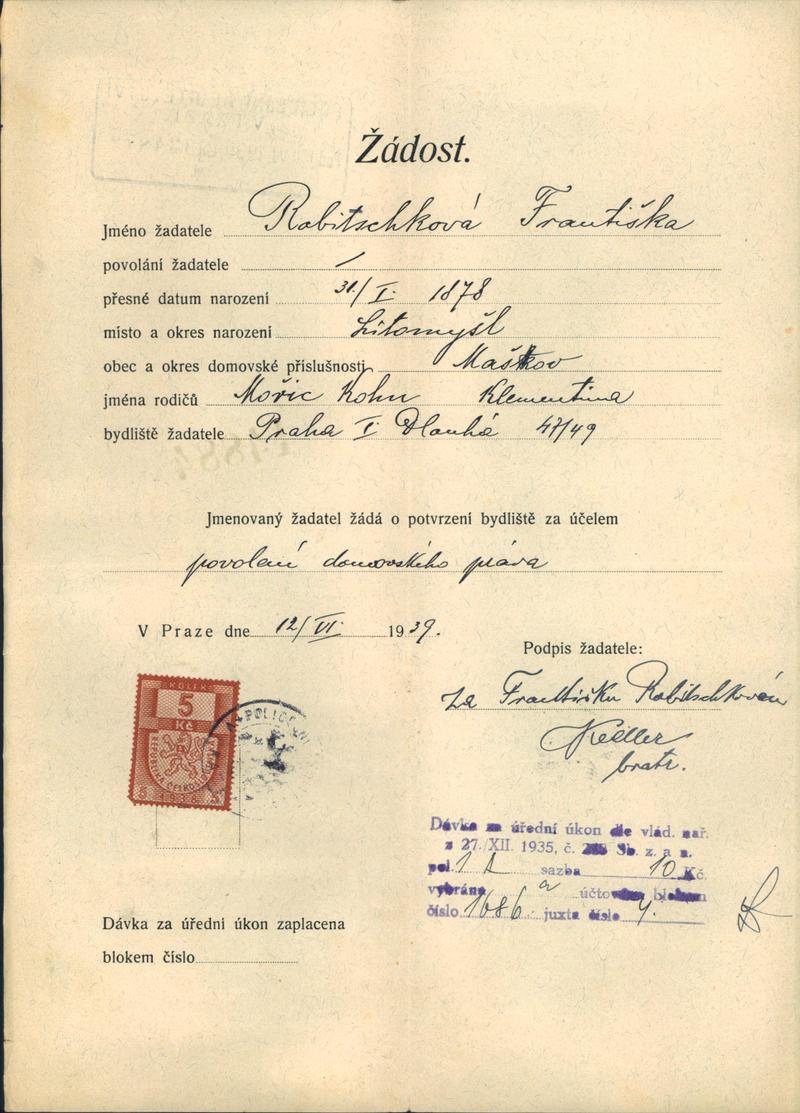 Žádost.
Jméno žadatele Robitschková Františka
povolání žadatele /
přesné datum narození 31/I. 1878
místo a okres narození Litomyšl
obec a okres domovské příslušnosti Maškov
jména rodičů Mořic Kohn Klementina
bydliště žadatele Praha I. Dlouhá 47/49
Jmenovaný žadatel žádá o potvrzení bydliště za účelem
povolení domovského práva
V Praze dne 12/VI. 1939.
Podpis žadatele:
za Františku Robitschkovou
bratr.
KOLEK
5
Kč
5 1938 5
POLICEJNÍ
Dávka za úřední úkon dle vlád. nař.
z 27./XII. 1935, č. Sb. z. a n.
pol. 1 sazba 10 Kč
vybrána a účtována blokem
číslo 1686 juxta číslo 4.
Dávka za úřední úkon zaplacena
blokem číslo